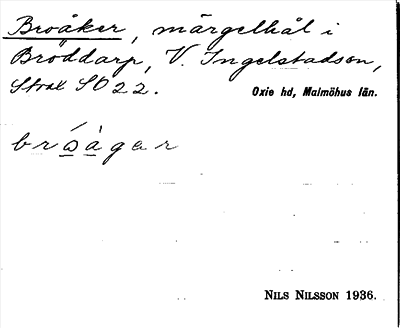 Broåker, märgelhål i
Bröddarp, V. Ingelstadsn,
Strax SO 22.
Oxie hd, Malmöhus län.
bróàgar
NILS NILSSON 1936.